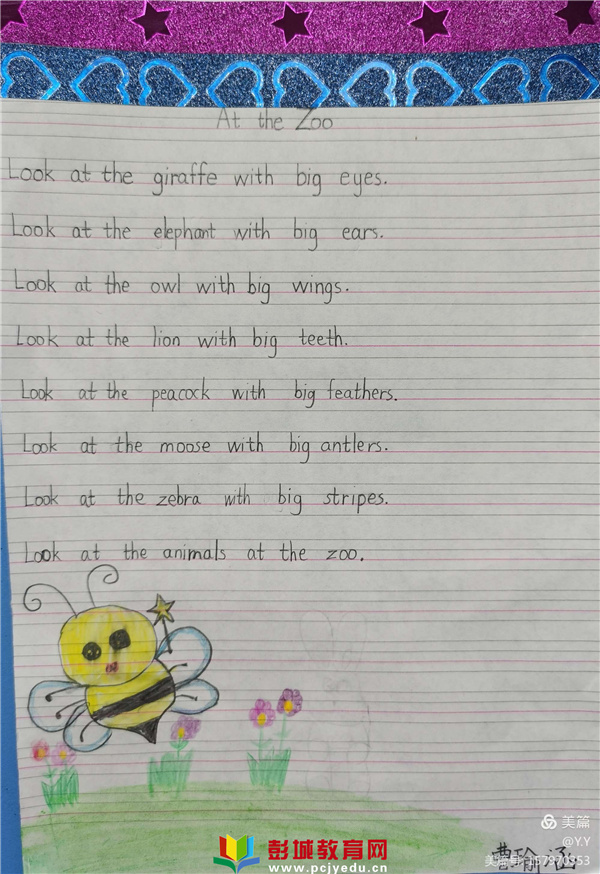 At the Zoo
Look at the giraffe with big eyes.
Look at the elephant with big ears.
Look at the owl with big wings.
Look at the lion with big teeth.
Look at the peacock with big feathers.
Look at the moose with big antlers.
Look at the zebra with big stripes.
Look at the animals at the zoo.
美篇
@Y.Y
曹瑜涵
彭城教育网
www.pcjyedu.cn